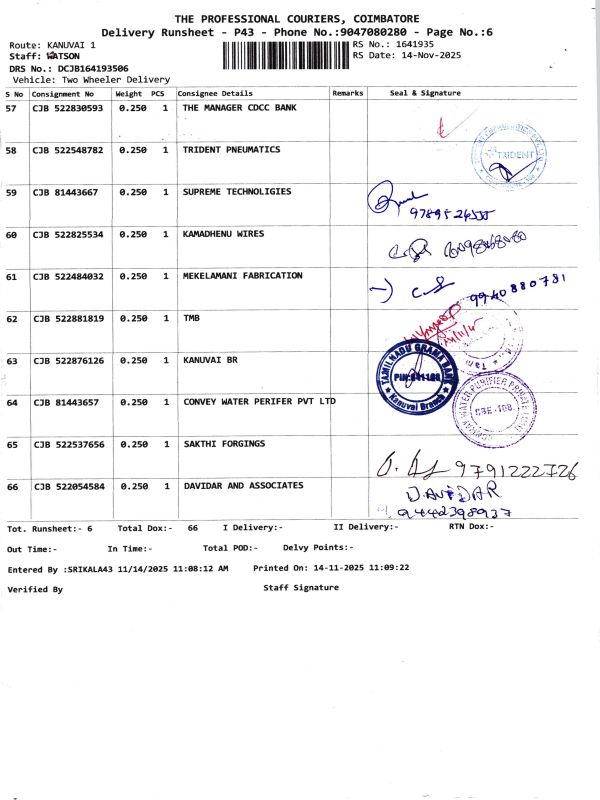 THE PROFESSIONAL COURIERS, COIMBATORE
Delivery Runsheet - P43 - Phone No.:9047080280 - Page No.:6
Route: KANUVAI 1 RS No.: 1641935
Staff: WATSON RS Date: 14-Nov-2025
DRS No.: DCJB164193506
Vehicle: Two Wheeler Delivery
S No Consignment No Weight PCS Consignee Details Remarks Seal & Signature
57 CJB 522830593 0.250 1 THE MANAGER CDCC BANK
58 CJB 522548782 0.250 1 TRIDENT PNEUMATICS
TRIDENT
59 CJB 81443667 0.250 1 SUPREME TECHNOLIGIES
9789526555
60 CJB 522825534 0.250 1 KAMADHENU WIRES
61 CJB 522484032 0.250 1 MEKELAMANI FABRICATION
9940880781
62 CJB 522881819 0.250 1 TMB
63 CJB 522876126 0.250 1 KANUVAI BR
TAMILNADU GRAMA BANK
PIN:641108
Kanuvai Branch
64 CJB 81443657 0.250 1 CONVEY WATER PERIFER PVT LTD
CONVAY WATER PURIFIER PRIVATE LIMITED
CBE-108.
65 CJB 522537656 0.250 1 SAKTHI FORGINGS
9791222726
66 CJB 522054584 0.250 1 DAVIDAR AND ASSOCIATES
DAVIDAR
9442398937
Tot. Runsheet:- 6 Total Dox:- 66 I Delivery:- II Delivery:- RTN Dox:-
Out Time:- In Time:- Total POD:- Delvy Points:-
Entered By :SRIKALA43 11/14/2025 11:08:12 AM Printed On: 14-11-2025 11:09:22
Verified By Staff Signature